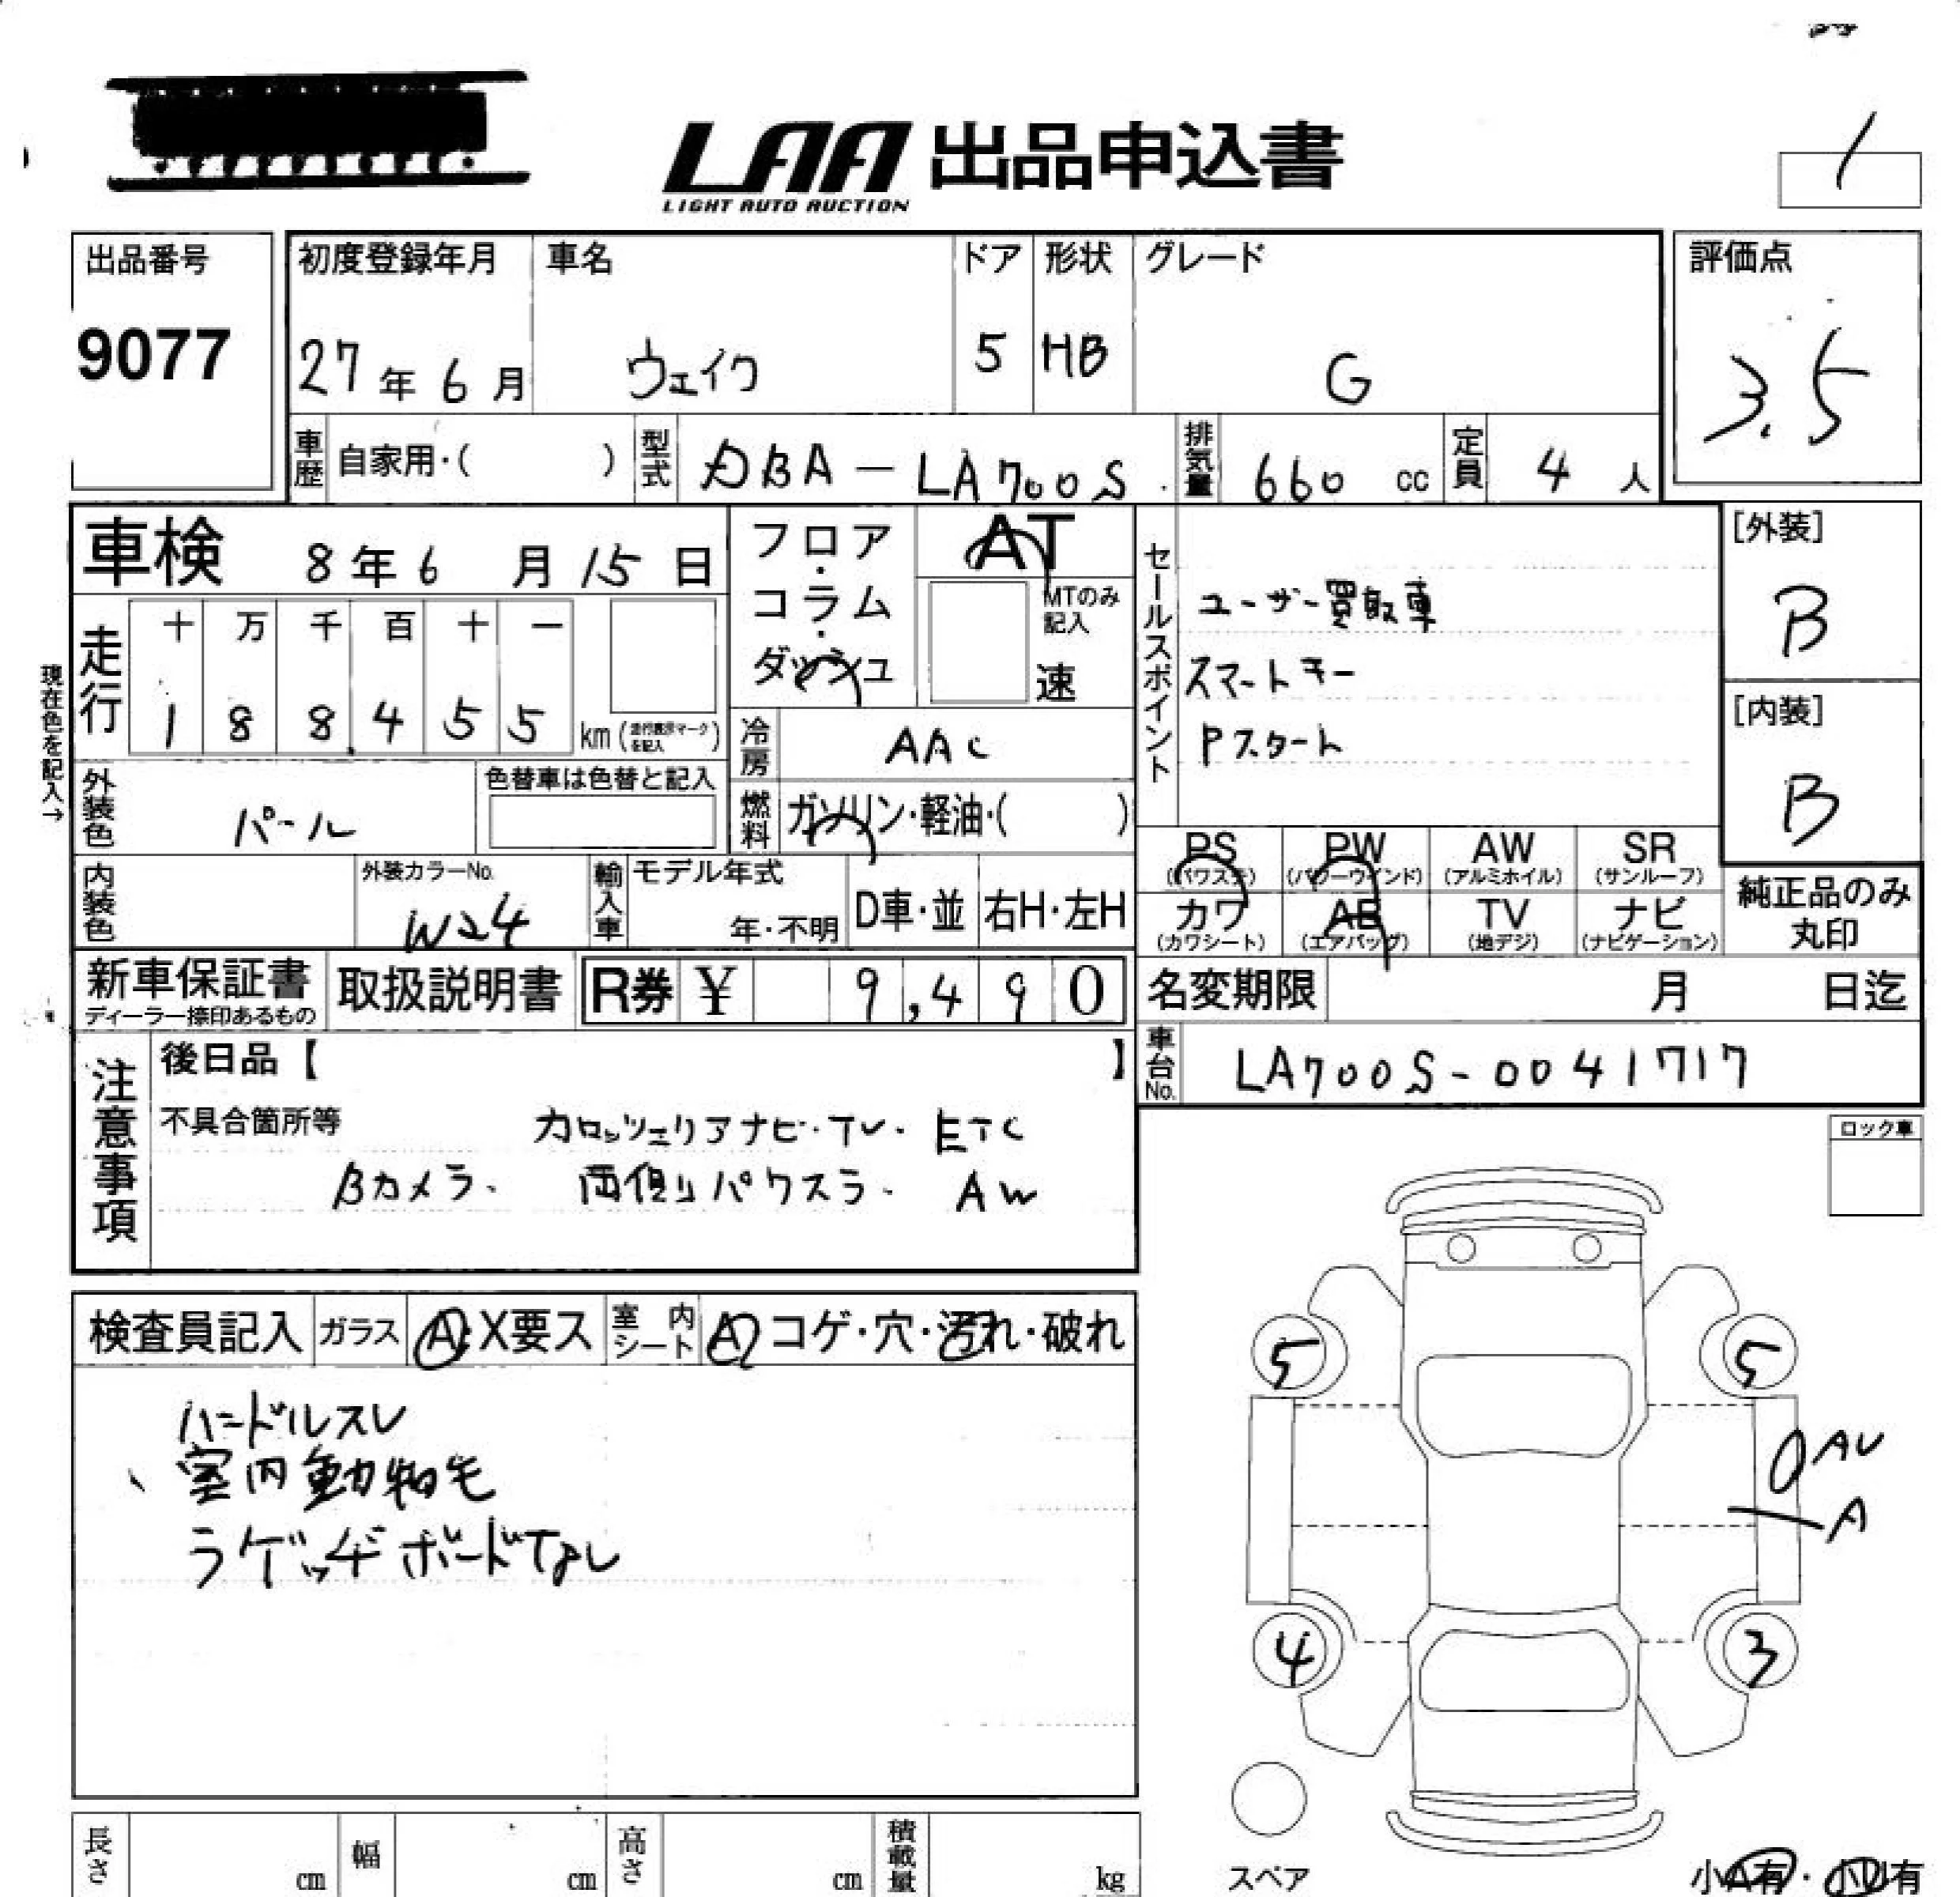 LAA 出品申込書
LIGHT AUTO AUCTION
1
出品番号
9077
初度登録年月
27年6月
車名
ウェイク
ドア
5
形状
HB
グレード
G
評価点
3.5
車歴 自家用・( )
型式 DBA-LA700S
排気量 660 cc
定員 4 人
車検 8年6月15日
フロア・コラム・ダッシュ
AT
MTのみ記入
速
セールスポイント
ユーザー買取車
スマートキー
Pスタート
[外装]
B
[内装]
B
現在色を記入→
走行
十 万 千 百 十 一
1 8 8 4 5 5 km (走行表示マークを記入)
冷房 AAC
外装色 パール
色替車は色替と記入
燃料 ガソリン・軽油・( )
PS (パワステ)
PW (パワーウインド)
AW (アルミホイル)
SR (サンルーフ)
カワ (カワシート)
AB (エアバッグ)
TV (地デジ)
ナビ (ナビゲーション)
純正品のみ丸印
内装色
外装カラーNo.
W24
輸入車
モデル年式
年・不明
D車・並
右H・左H
新車保証書
ディーラー捺印あるもの
取扱説明書
R券 ¥ 9,490
名変期限 月 日迄
車台No. LA700S-0041717
注意事項
後日品【 】
不具合箇所等
カロッツェリアナビ・TV・ETC
Bカメラ・ 両側パワスラ・ AW
ロック車
検査員記入
ガラス A・X要ス
室内シート A コゲ・穴・汚れ・破れ
ハンドルスレ
室内動物毛
ラゲッヂボードなし
5
5
AU
A
4
3
スペア
小A有・小U有
長さ cm
幅 cm
高さ cm
積載量 kg